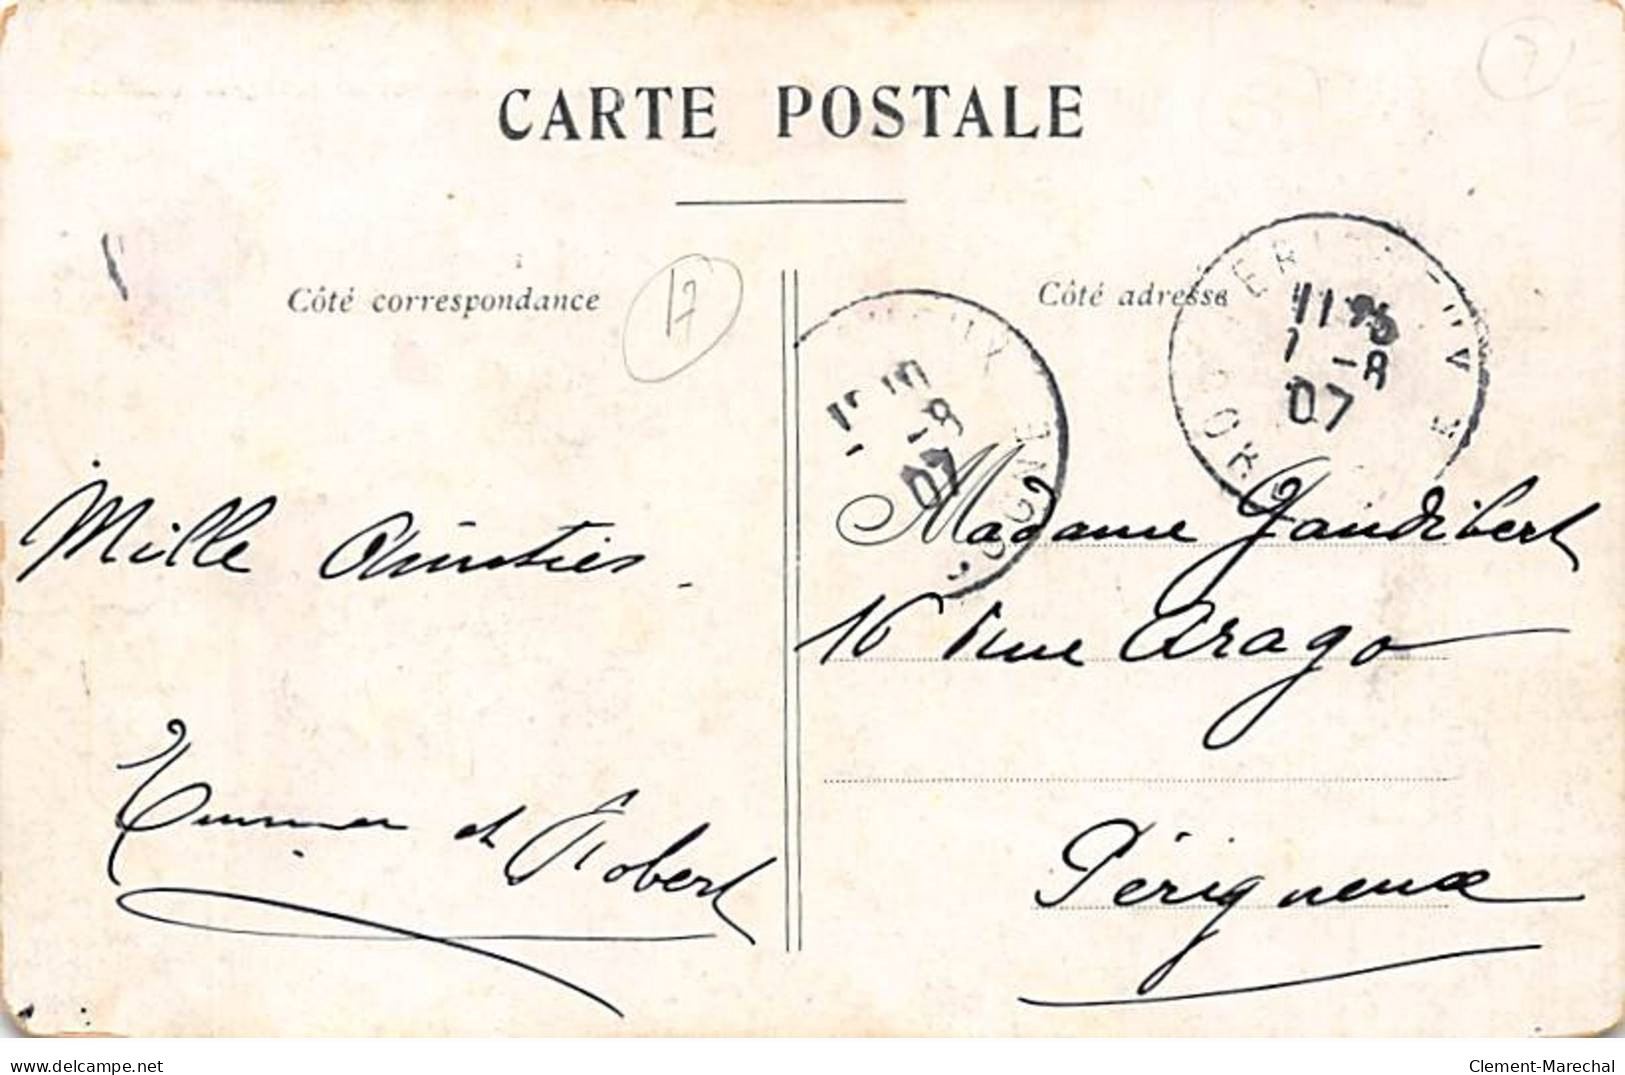 CARTE POSTALE
Côté correspondance
17
Côté adresse
7
11 35
7 -8
07
-8
07
Mille Amitiés.
Emma et Robert
Madame Gaudibert
16 rue Arago
Périgueux
delcampe.net
Clement-Marechal